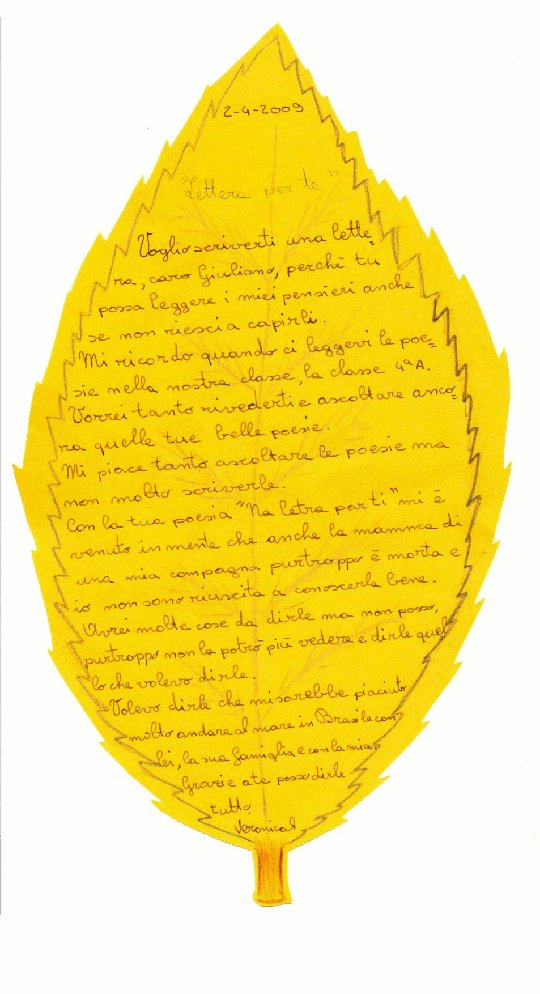 2-4-2009
"Lettera per te"
Voglio scriverti una lette=
ra, caro Giuliano, perché tu
possa leggere i miei pensieri anche
se non riesci a capirli.
Mi ricordo quando ci leggevi le poe=
sie nella nostra classe, la classe 4ªA.
Vorrei tanto rivederti e ascoltare anco=
ra quelle tue belle poesie.
Mi piace tanto ascoltare le poesie ma
non molto scriverle.
Con la tua poesia "Na letra par ti" mi è
venuto in mente che anche la mamma di
una mia compagna purtroppo è morta e
io non sono riuscita a conoscerla bene.
Avrei molte cose da dirle ma non posso,
purtroppo non la potrò più vedere e dirle quel
lo che volevo dirle.
Volevo dirle che mi sarebbe piaciuto
molto andare al mare in Brasile con
lei, la sua famiglia e con la mia.
Grazie a te posso dirle
tutto
Veronica